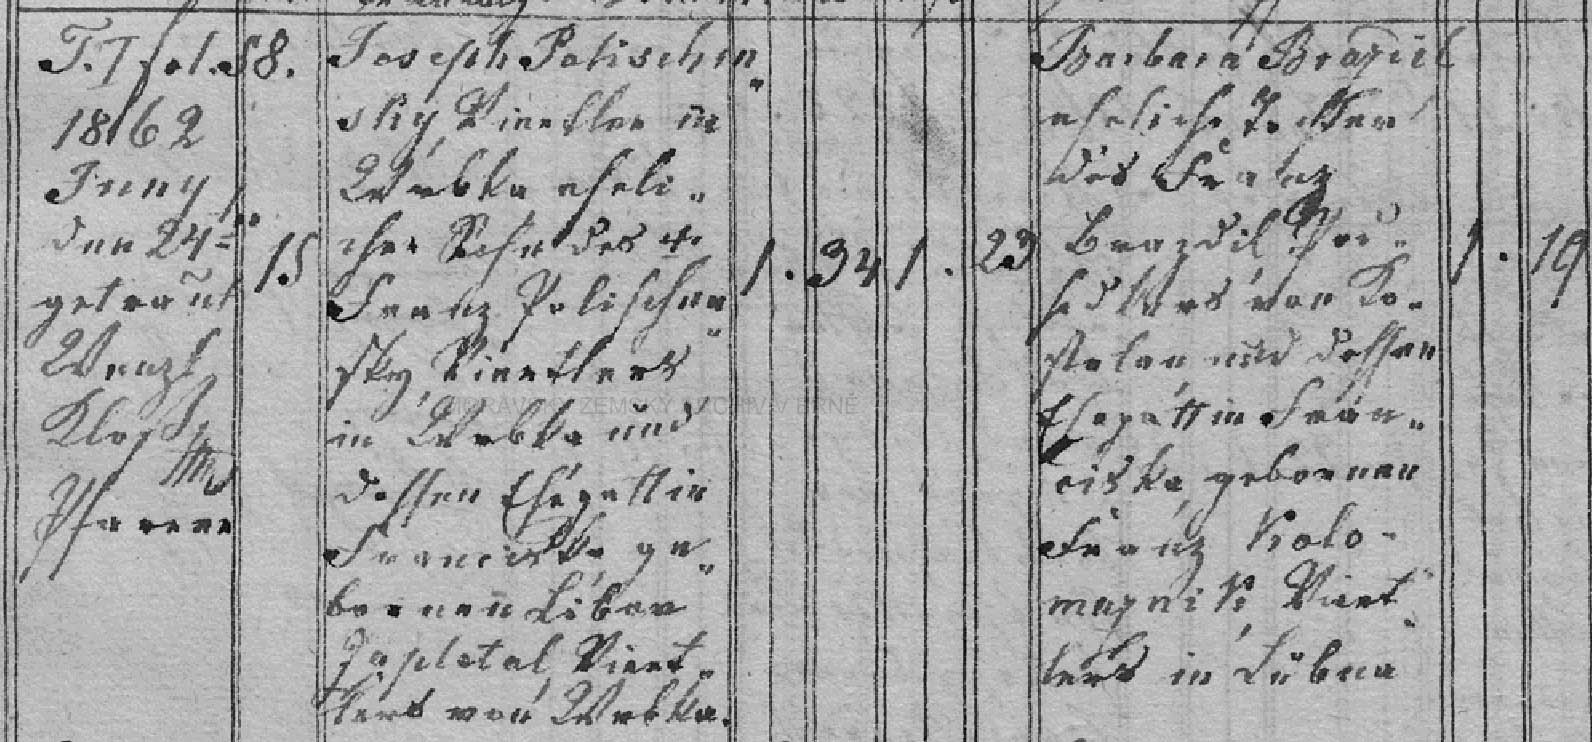 T. I fol. 58.
1862
Juny
den 24ten
getraut
Wenzl
Kloß
Pfarrer
15
Joseph Polischen„
sky, Viertler in
Wrbka eheli„
cher Sohn des †
Franz Polischen„
sky, Viertlers
in Wrbka und
dessen Ehegattin
Franciska ge„
bornen Libor
Zapletal Viert„
lers von Wrbka.
1. 34 1. 23
Barbara Brazdil
eheliche Tochter
des Franz
Brazdil
von Ko„
stelan und dessen
Ehegattin Fran„
ciska, gebornen
Franz Kolo-
maznik, Viert„
lers in Lubna
1. 19
MORAVSKÝ ZEMSKÝ ARCHIV V BRNĚ